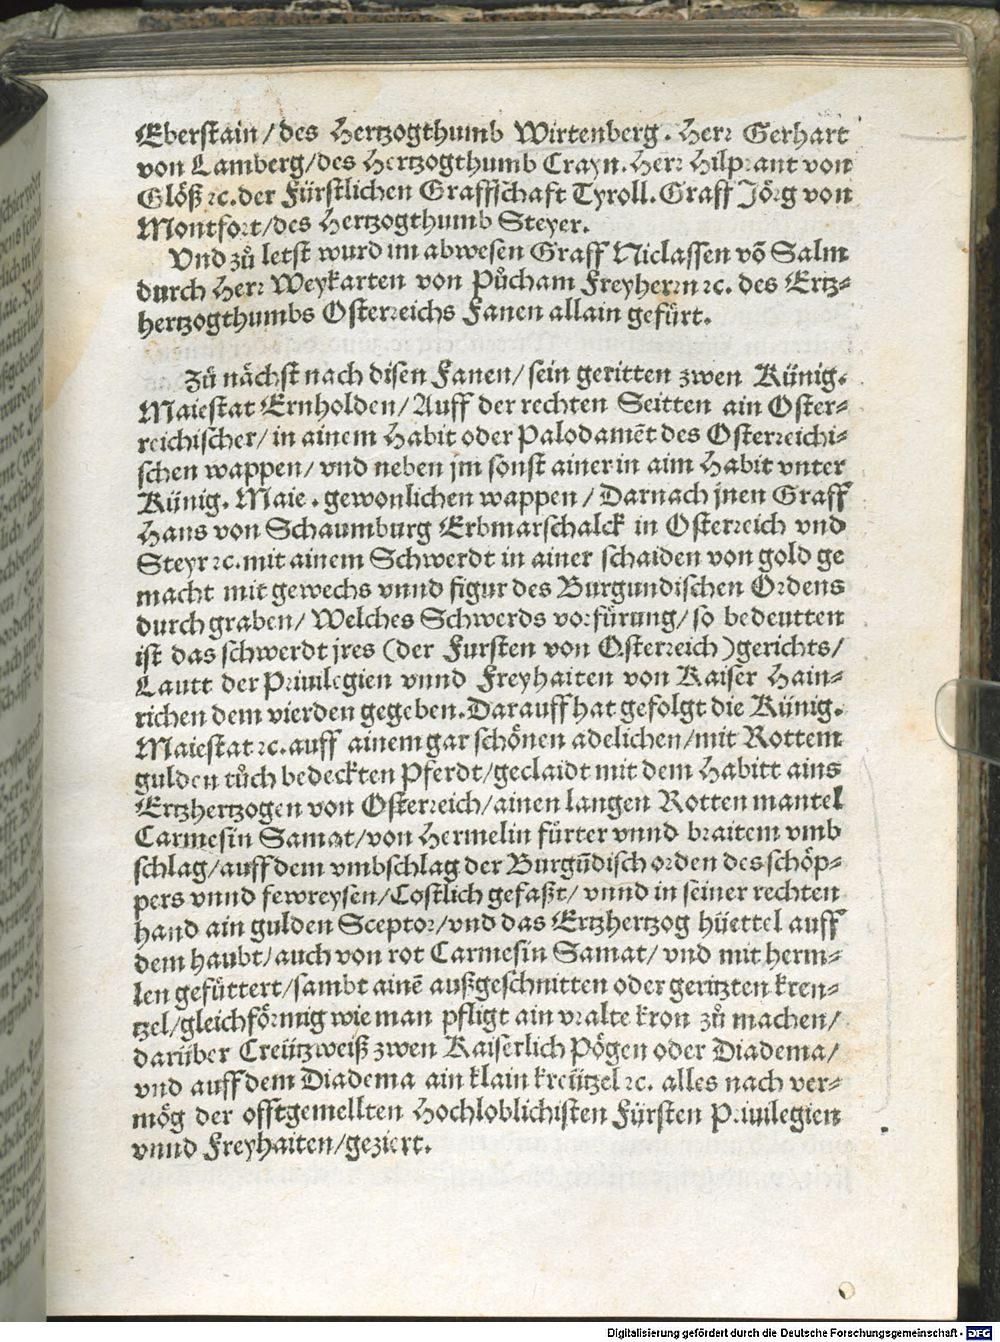 Eberstain/des Hertzogthumb Wirtenberg. Herr Gerhart
von Lamberg/des Hertzogthumb Crayn. Herr Hilprant von
Glöß ꝛc. der Fürstlichen Graffschaft Tyroll. Graff Jörg von
Montfort/des Hertzogthumb Steyer.
Vnd zů letst wurd im abwesen Graff Niclassen võ Salm
durch Herr Weykarten von Půcham Freyherrn ꝛc. des Ertz-
hertzogthumbs Osterreichs Fanen allain gefürt.
Zů nächst nach disen Fanen/ sein geritten zwen Künig.
Maiestat Ernholden/ Auff der rechten Seitten ain Oster-
reichischer/ in ainem Habit oder Palodamẽt des Osterreichi-
schen wappen/ vnd neben jm sonst ainer in aim Habit vnter
Künig. Maie. gewonlichen wappen/ Darnach jnen Graff
Hans von Schaumburg Erbmarschalck in Osterreich vnd
Steyr ꝛc. mit ainem Schwerdt in ainer schaiden von gold ge
macht mit gewechs vnnd figur des Burgundischen Ordens
durch graben/ Welches Schwerds vorfürung/ so bedeutten
ist das schwerdt jres (der Fursten von Osterreich) gerichts/
Lautt der Priuilegien vnnd Freyhaiten von Kaiser Hain-
richen dem vierden gegeben. Darauff hat gefolgt die Künig.
Maiestat ꝛc. auff ainem gar schönen adelichen/mit Rottem
gulden tůch bedeckten Pferdt/geclaidt mit dem Habitt ains
Ertzhertzogen von Osterreich/ainen langen Rotten mantel
Carmesin Samat/von Hermelin fürter vnnd braitem vmb
schlag/auff dem vmbschlag der Burgũdisch orden des schöp-
pers vnnd fewreysen/Costlich gefaßt/ vnnd in seiner rechten
hand ain gulden Sceptor/vnd das Ertzhertzog hüettel auff
dem haubt/auch von rot Carmesin Samat/ vnd mit herm-
len gefüttert/sambt ainẽ außgeschnitten oder geritzten kren-
tzel/gleichförmig wie man pfligt ain vralte kron zů machen/
darüber Creützweiß zwen Kaiserlich Pögen oder Diadema/
vnd auff dem Diadema ain klain kreützel ꝛc. alles nach ver-
mög der offtgemellten Hochloblichisten Fürsten Priuilegien
vnnd Freyhaiten/geziert.
Digitalisierung gefördert durch die Deutsche Forschungsgemeinschaft - DFG